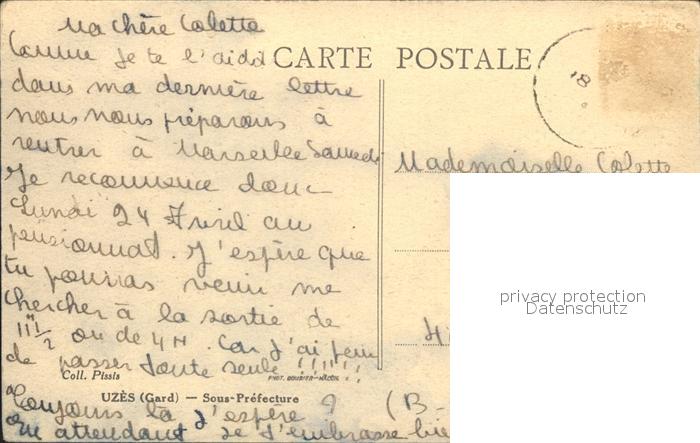 Ma chère Colette
Comme je te l'ai dit
CARTE POSTALE
dans ma dernière lettre
nous nous préparons à
rentrer à Marseille Samedi
Je recommence donc
Lundi 24 Avril au
pensionnat. J'espère que
tu pourras venir me
chercher à la sortie de
11 1/2 ou de 4 H. Car j'ai peur
de passer toute seule !!!!!!
Coll. Pissis
UZÈS (Gard) — Sous-Préfecture
Toujours là j'espère ? (B-
En attendant je t'embrasse bie
18
Mademoiselle Colette
privacy protection
Datenschutz